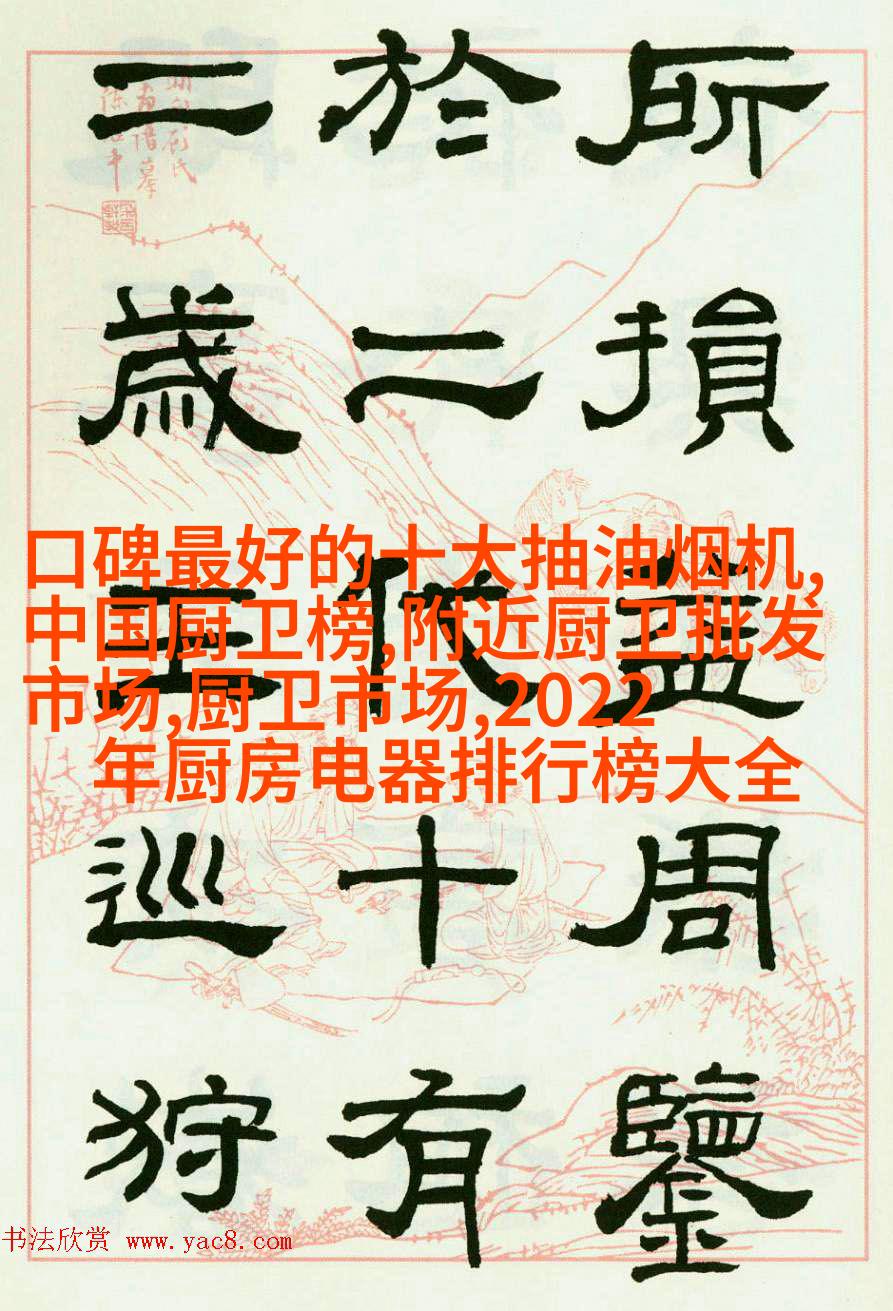 所損益周鑒
於二代十有
二歲王巡狩
口碑最好的十大抽油烟机,
中国厨卫榜,附近厨卫批发
市场,厨卫市场,2022
年厨房电器排行榜大全
书法欣赏 www.yac8.com